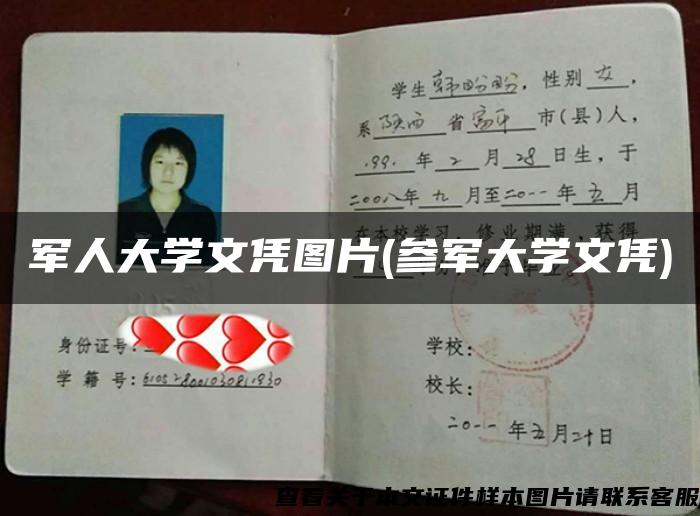 学生韩盼盼，性别女，
系陕西省富平市(县)人，
.99.年2月28日生，于
二00八年九月至二0一一年五月
在本校学习，修业期满，获得
军人大学文凭图片(参军大学文凭)
身份证号:
学籍号:
学校:
校长:
二0一一年五月二十日
查看关于本文证件样本图片请联系客服